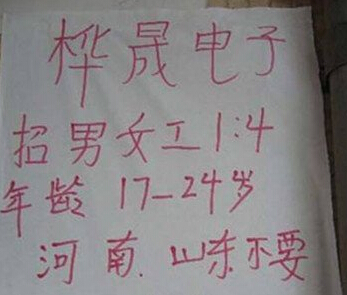 桦晟电子
招男女工1:4
年龄 17—24岁
河南.山东不要